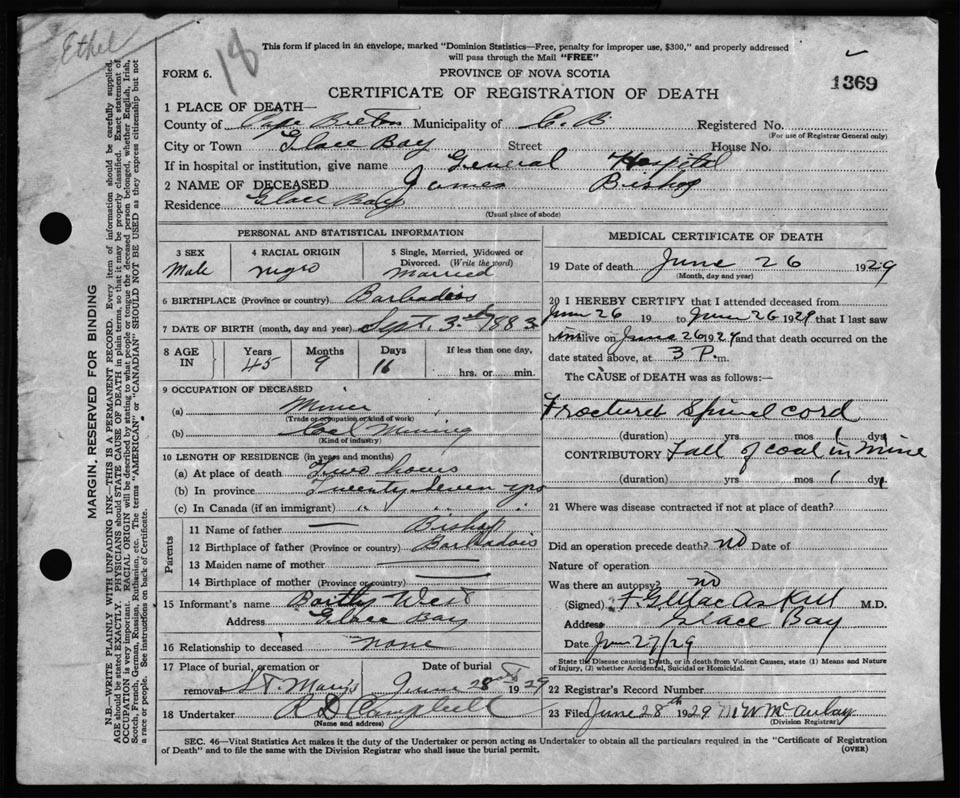 Ethel
18
This form if placed in an envelope, marked "Dominion Statistics—Free, penalty for improper use, $300," and properly addressed
will pass through the Mail "FREE"
FORM 6.
PROVINCE OF NOVA SCOTIA
1369
CERTIFICATE OF REGISTRATION OF DEATH
1 PLACE OF DEATH—
County of Cape Breton Municipality of C. B Registered No.
(For use of Registrar General only)
City or Town Glace Bay Street House No.
If in hospital or institution, give name General Hospital
2 NAME OF DECEASED James Bishop
Residence Glace Bay
(Usual place of abode)
PERSONAL AND STATISTICAL INFORMATION
3 SEX 4 RACIAL ORIGIN 5 Single, Married, Widowed or
Divorced. (Write the word)
Male negro Married
6 BIRTHPLACE (Province or country) Barbadoes
7 DATE OF BIRTH (month, day and year) Sept. 3rd 1883
8 AGE IN Years Months Days If less than one day,
45 9 16 hrs. or min.
9 OCCUPATION OF DECEASED
(a) Miner
(Trade occupation or kind of work)
(b) Coal Mining
(Kind of industry)
10 LENGTH OF RESIDENCE (in years and months)
(a) At place of death Two hours
(b) In province Twenty-Seven yrs
(c) In Canada (if an immigrant) " "
Parents
11 Name of father — Bishop
12 Birthplace of father (Province or country) Barbadois
13 Maiden name of mother —
14 Birthplace of mother (Province or country) —
15 Informant's name
Address Glace Bay
16 Relationship to deceased none
17 Place of burial, cremation or Date of burial
removal St Mary's June 28th 1929
18 Undertaker R D Campbell
(Name and address)
MEDICAL CERTIFICATE OF DEATH
19 Date of death June 26 1929
(Month, day and year)
20 I HEREBY CERTIFY that I attended deceased from
June 26 19 to June 26 1929 that I last saw
him alive on June 26 1929 and that death occurred on the
date stated above, at 3 P. m.
The CAUSE of DEATH was as follows:—
Fractured Spinal cord
(duration) yrs mos 1 dys
CONTRIBUTORY Fall of coal in mine
(duration) yrs mos 1 dys
21 Where was disease contracted if not at place of death?
Did an operation precede death? no Date of
Nature of operation
Was there an autopsy? no
(Signed) M.D.
Address Glace Bay
Date Jun 27/29
State the Disease causing Death, or in death from Violent Causes, state (1) Means and Nature
of Injury, (2) whether Accidental, Suicidal or Homicidal.
22 Registrar's Record Number
23 Filed June 28th 1929 McAulay
(Division Registrar)
SEC. 46—Vital Statistics Act makes it the duty of the Undertaker or person acting as Undertaker to obtain all the particulars required in the "Certificate of Registration
of Death" and to file the same with the Division Registrar who shall issue the burial permit.
(OVER)
MARGIN, RESERVED FOR BINDING
N.B.—WRITE PLAINLY WITH UNFADING INK—THIS IS A PERMANENT RECORD. Every item of information should be carefully supplied.
AGE should be stated EXACTLY. PHYSICIANS should STATE CAUSE OF DEATH in plain terms, so that it may be properly classified. Exact statement of
OCCUPATION is very important. RACIAL ORIGIN will be described by stating to what people or tongue the deceased person belonged, whether English, Irish,
Scotch, French, German, Russian, Ruthenian, etc. The terms "AMERICAN" or "CANADIAN" SHOULD NOT BE USED as they express citizenship but not
a race or people. See instructions on back of Certificate.